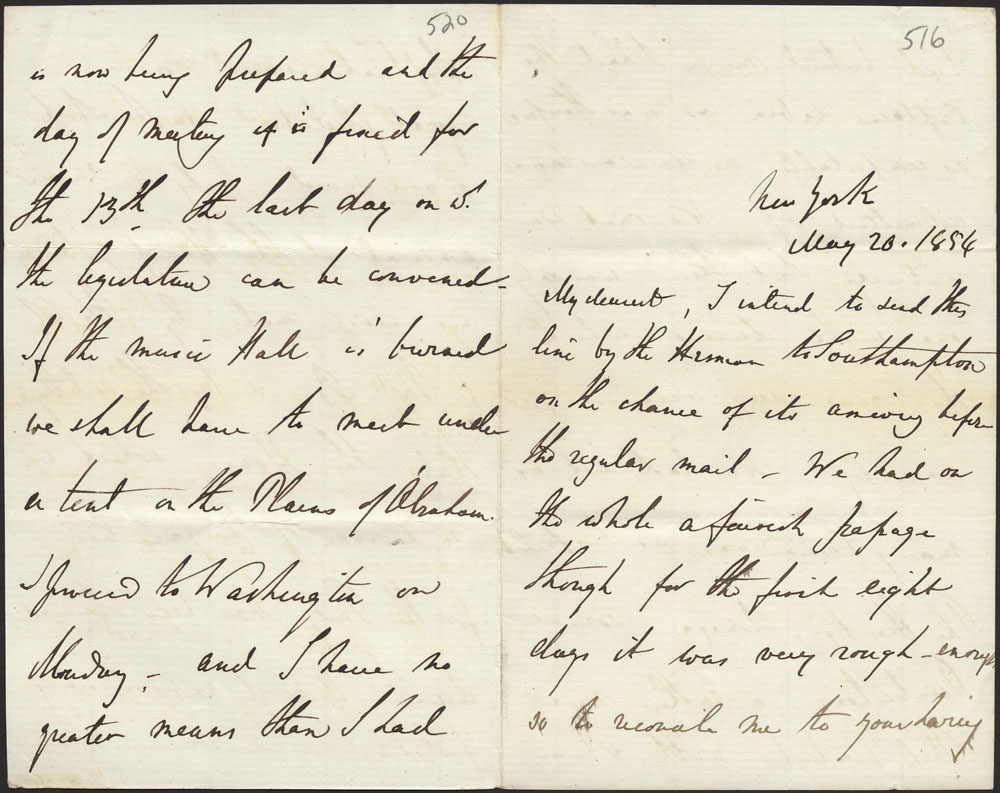 520
is now being prepared and the
day of meeting it is fixed for
the 13th, the last day on wh.
the legislature can be convened -
If the music Hall is burned
we shall have to meet under
a tent on the Plains of Abraham.
I proceed to Washington on
Monday - and I have no
greater means than I had
516
New York
May 20. 1854
My dearest, I intend to send this
line by the Herman to Southampton
on the chance of its arriving before
the regular mail - We had on
the whole a fairish passage
though for the first eight
days it was very rough - enough
so to reconcile me to your having